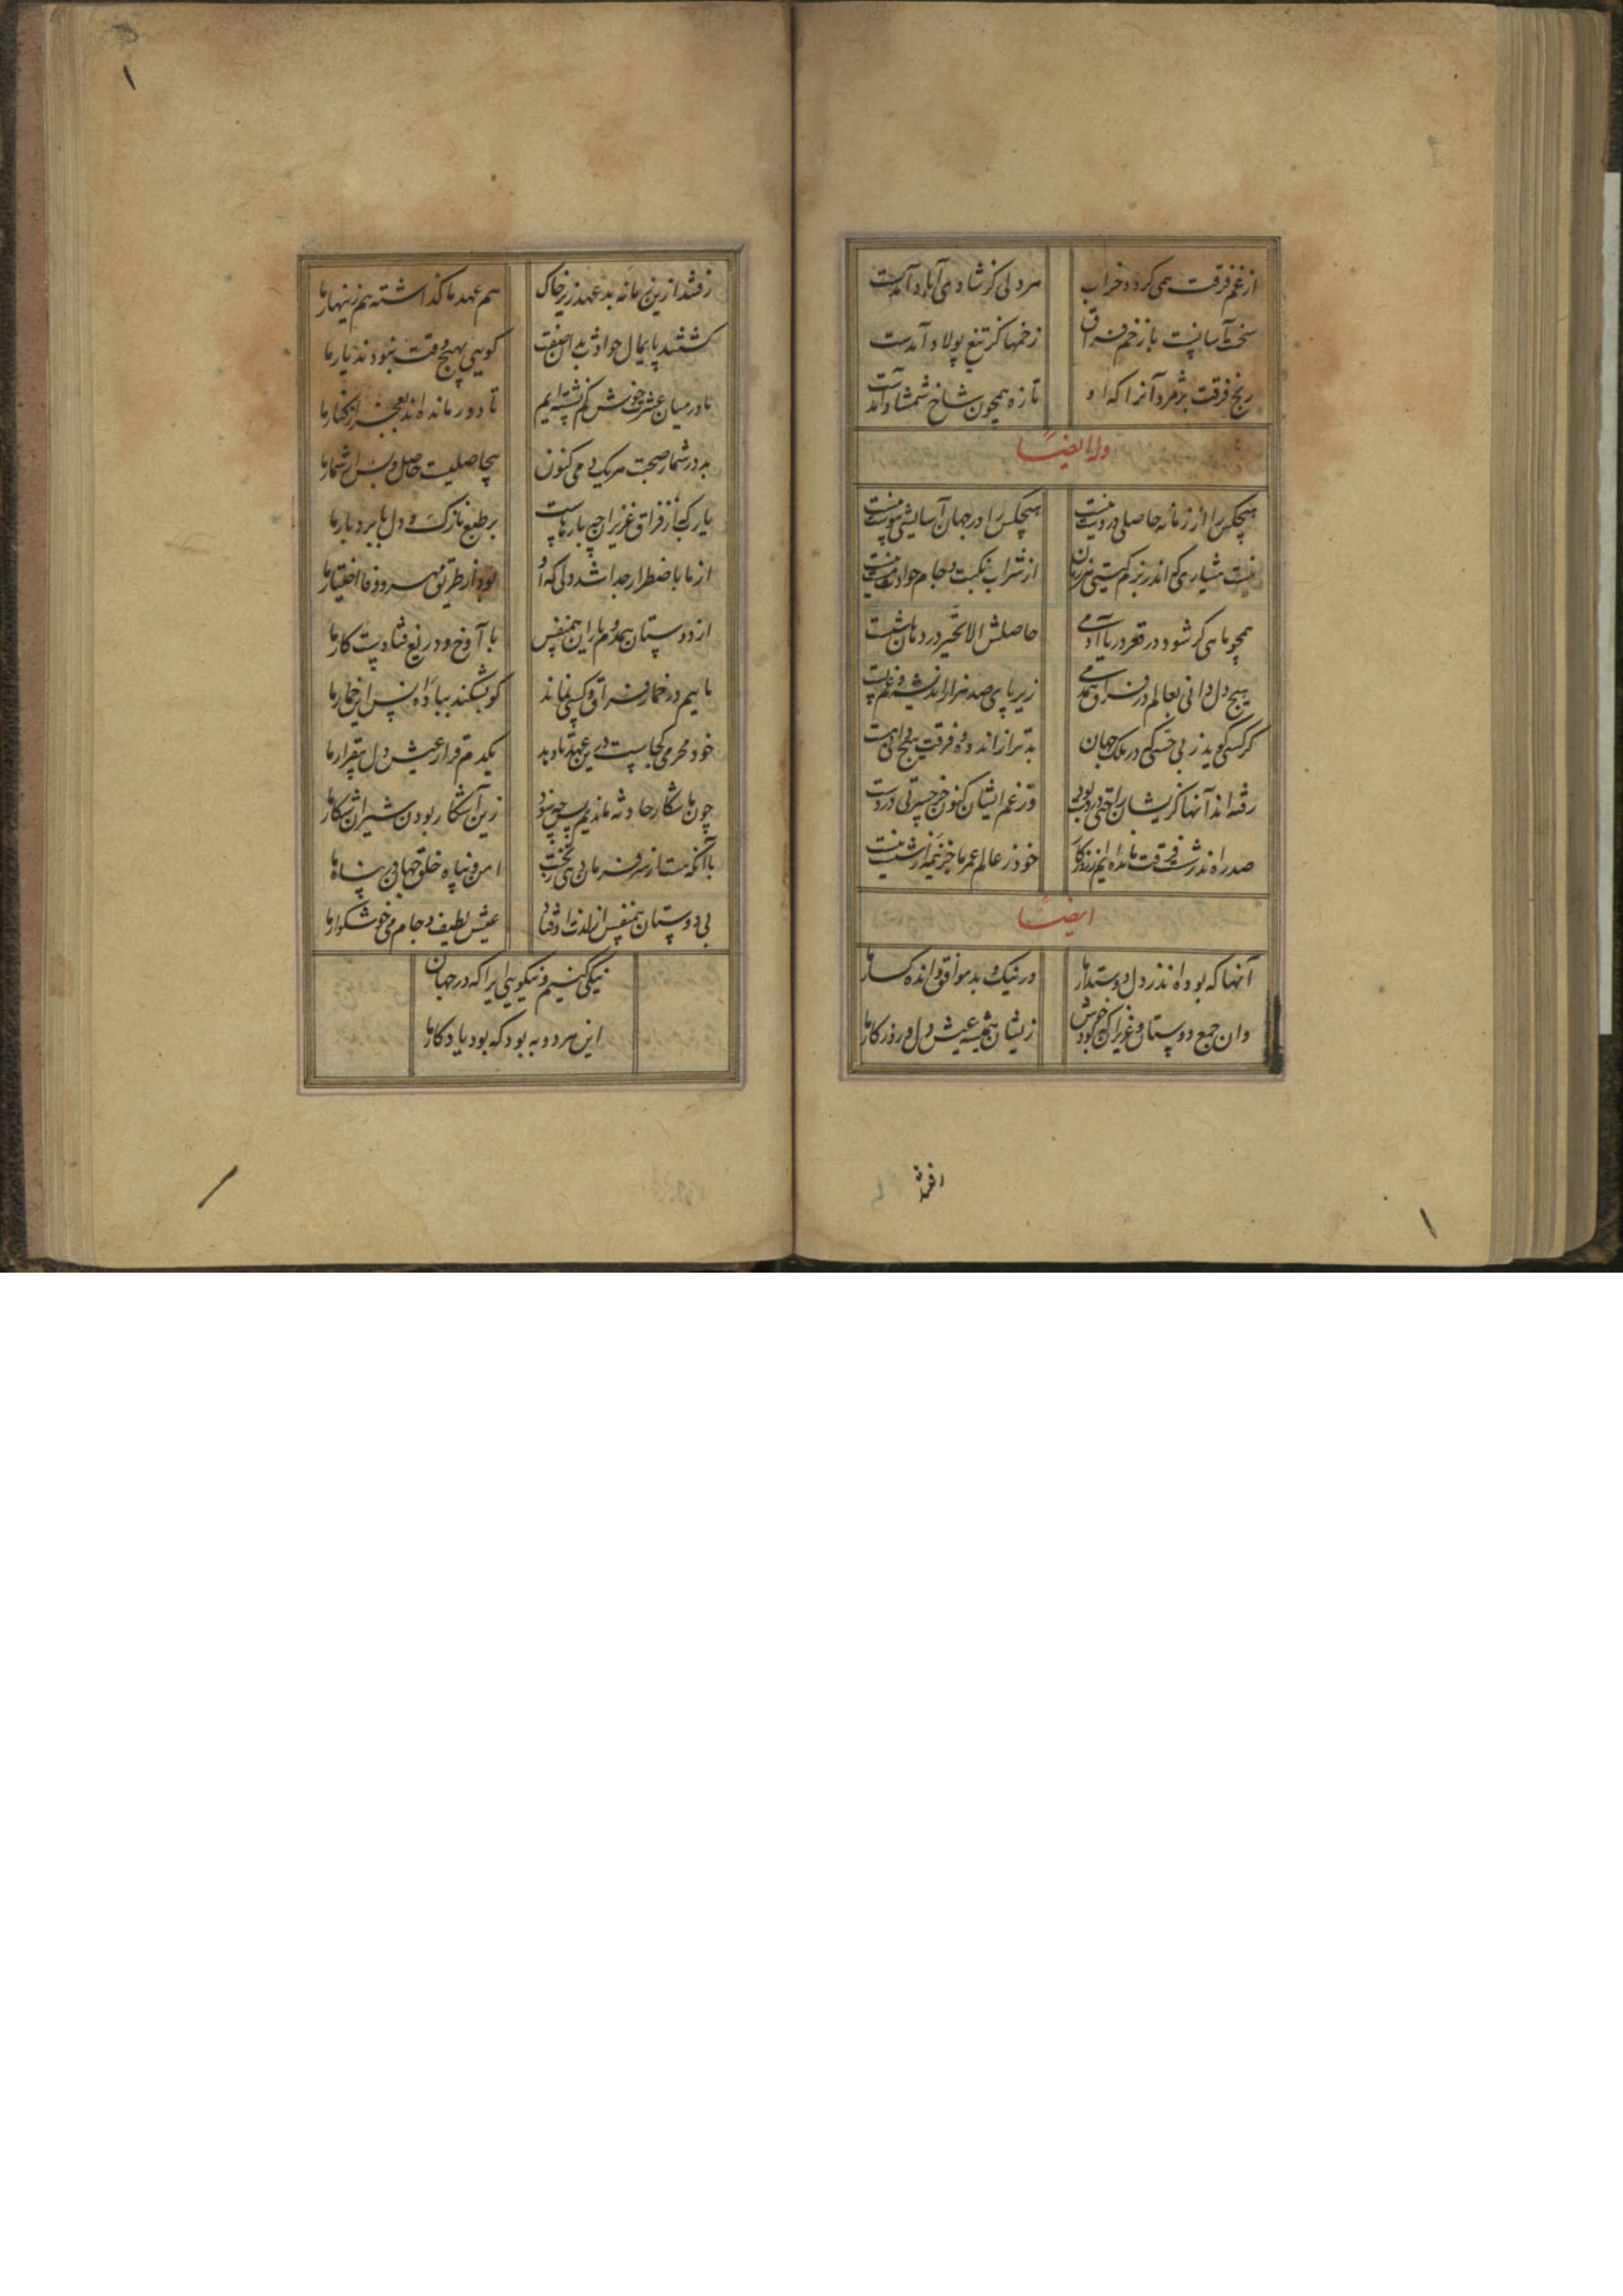 از غم فرقت همی کردد خراب
هر دلی کز شادمی آباد آمدست
سخت آسانیست با زخم فراق
زخمها کز تیغ پولاد آمدست
رنج فرقت پژمرد آنرا که او
تازه همچون شاخ شمشاد آمدست
وله ایضاً
هیچکس را از زمانه حاصلی در دست نیست
هیچکس را در جهان آسایشی پیوست نیست
نیست هشیاری که اندر بزم کیتی هر زمان
از شراب نکبت و جام حوادث مست نیست
همچو ماهی کر شود در قعر دریا آدمی
حاصلش الا تحیر در دهان شست نیست
هیچ دل دانی بعالم در فراق همدمی
زیر پای صد هزار اندیشه و غم پست
کر کسی کوید ز بی حسکی در ملک جهان
بدتر از اندوه فرقت هیچ
رفته اند آنها کزیشان راحتی در
وز غم ایشان کنون جز حسرتی در دست
صد ره اندر شست فرقت مانده ایم از روزکار
خود ز عالم عمر ما جز نیمه از شست نیست
ایضاً
آنها که بوده اند ز دل دوستدار ما
در نیک و بد موافق و انده کسار ما
وان جمع دوستان و عزیزان که بود خوش
زیشان همیشه عیش دل و روزکار ما
رفتند
رفتند ازین زمانه بد عهد زیر خاک
هم عهد ما کذاشته هم زینهار ما
کشتند پایمال حوادث بدان صفت
کویی بهیچ وقت نبودند یار ما
ما در میان عشرت خوش کم نشسته ایم
تا دور مانده اند بعجز از کنار ما
بد در شمار صحبت هر یک دمی کنون
بیحاصلیست حاصل و بس از شمار ما
یارب که از فراق عزیزان چه بارهاست
بر طبع نازک و دل نابردبار ما
از ما باضطرار جدا شد دلی که او
بود از طریق مهر و وفا اختیار ما
از دوستان همدم و یاران همنفس
با آوخ و دریغ فتادست کار ما
ماییم در خمار فراق و کسی نماند
کو بشکند بباده ازین پس خمار ما
خود محرمی کجاست درین عهد تا دهد
یکدم قرار عیش دل بیقرار ما
چون ما شکار حادثه ماندیم پس چه سود
زین آشکار بودن شیران شکار ما
با آنکه هست از سر فرمان دهی بخت
امن و پناه خلق جهان در پناه ما
بی دوستان همنفس از لذت اوفتاد
عیش لطیف و جام می خوشکوار ما
نیکی کنیم و نیکویی ایرا که در جهان
این هر دو به بود که بود یادکار ما